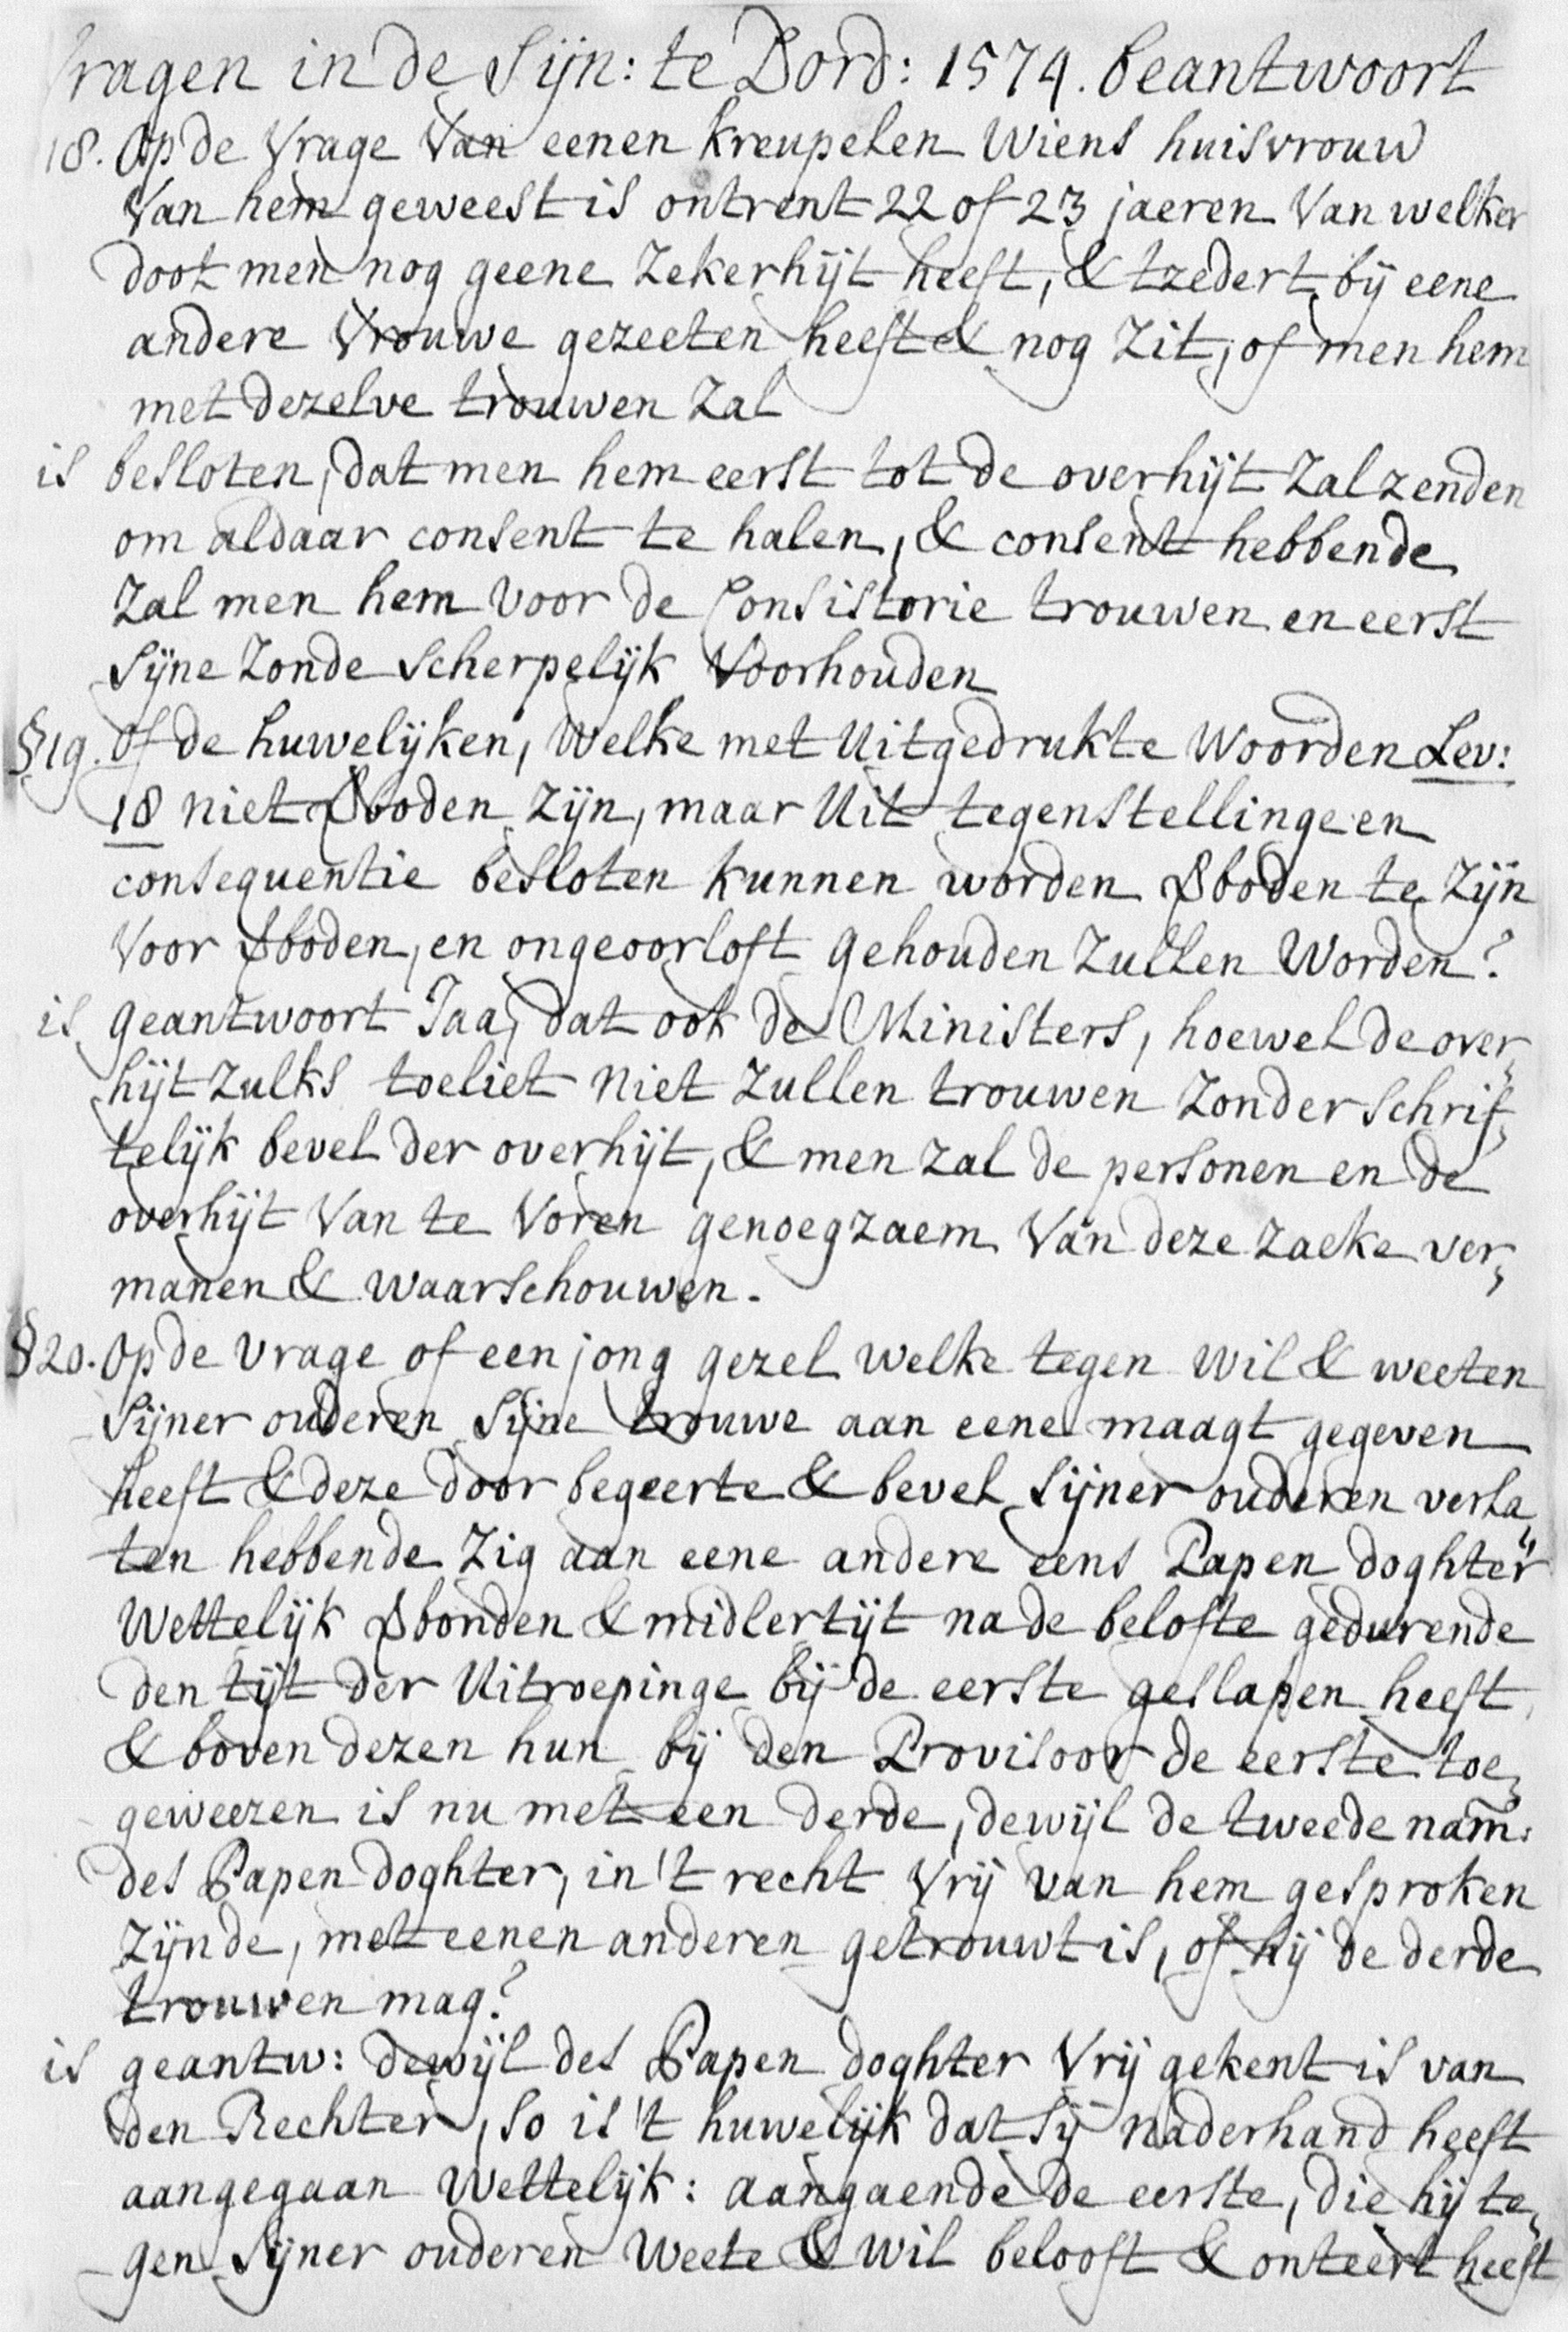 Vragen in de Sijn: te Dord: 1574. beantwoort
18. Op de Vrage Van eenen kreupelen Wiens huisvrouw
Van hem geweest is ontrent 22 of 23 jaeren Van welker
doot men nog geene Zekerhijt heeft, & tzedert bij eene
andere Vrouwe gezeeten heeft & nog Zit, of men hem
met dezelve trouwen Zal
is besloten, dat men hem eerst tot de overhijt Zal zenden
om aldaar consent te halen, & consent hebbende
Zal men hem voor de Consistorie trouwen en eerst
Sijne Zonde Scherpelijk Voorhouden
§19. Of de huwelijken, Welke met Uitgedrukte Woorden Lev:
18 niet Vboden Zijn, maar Uit tegenstellinge en
consequentie besloten kunnen worden Vboden te Zijn
Voor Vboden, en ongeoorloft gehouden Zullen Worden?
is geantwoort Jaa, dat ook de Ministers, hoewel de over„
hijt Zulks toeliet niet Zullen trouwen Zonder Schrif„
telijk bevel der overhijt, & men zal de personen en de
overhijt Van te Voren genoegzaem Van deze Zaeke ver„
manen & waarschouwen.
§20. Op de vrage of een jong gezel welke tegen wil & weeten
Sijner ouderen Sijne trouwe aan eene maagt gegeven
heeft & deze door begeerte & bevel Sijner ouderen verla„
ten hebbende Zig aan eene andere eens Papen doghter
Wettelijk Vbonden & midlertijt na de belofte gedurende
den tijt der Uitroepinge bij de eerste geslapen heeft
& boven dezen hun bij den Provisoor de eerste toe„
geweezen is nu met een derde, dewijl de tweede nam:
des Papen doghter, in 't recht Vrij van hem gesproken
Zijnde, met eenen anderen getrouwt is, of hij de derde
trouwen mag?
is geantw: dewijl des Papen doghter Vrij gekent is van
den Rechter, so is 't huwelijk dat sij naderhand heeft
aangegaan Wettelijk: aangaende de eerste, die hij te„
gen Sijner ouderen Weete & wil belooft & onteert heeft